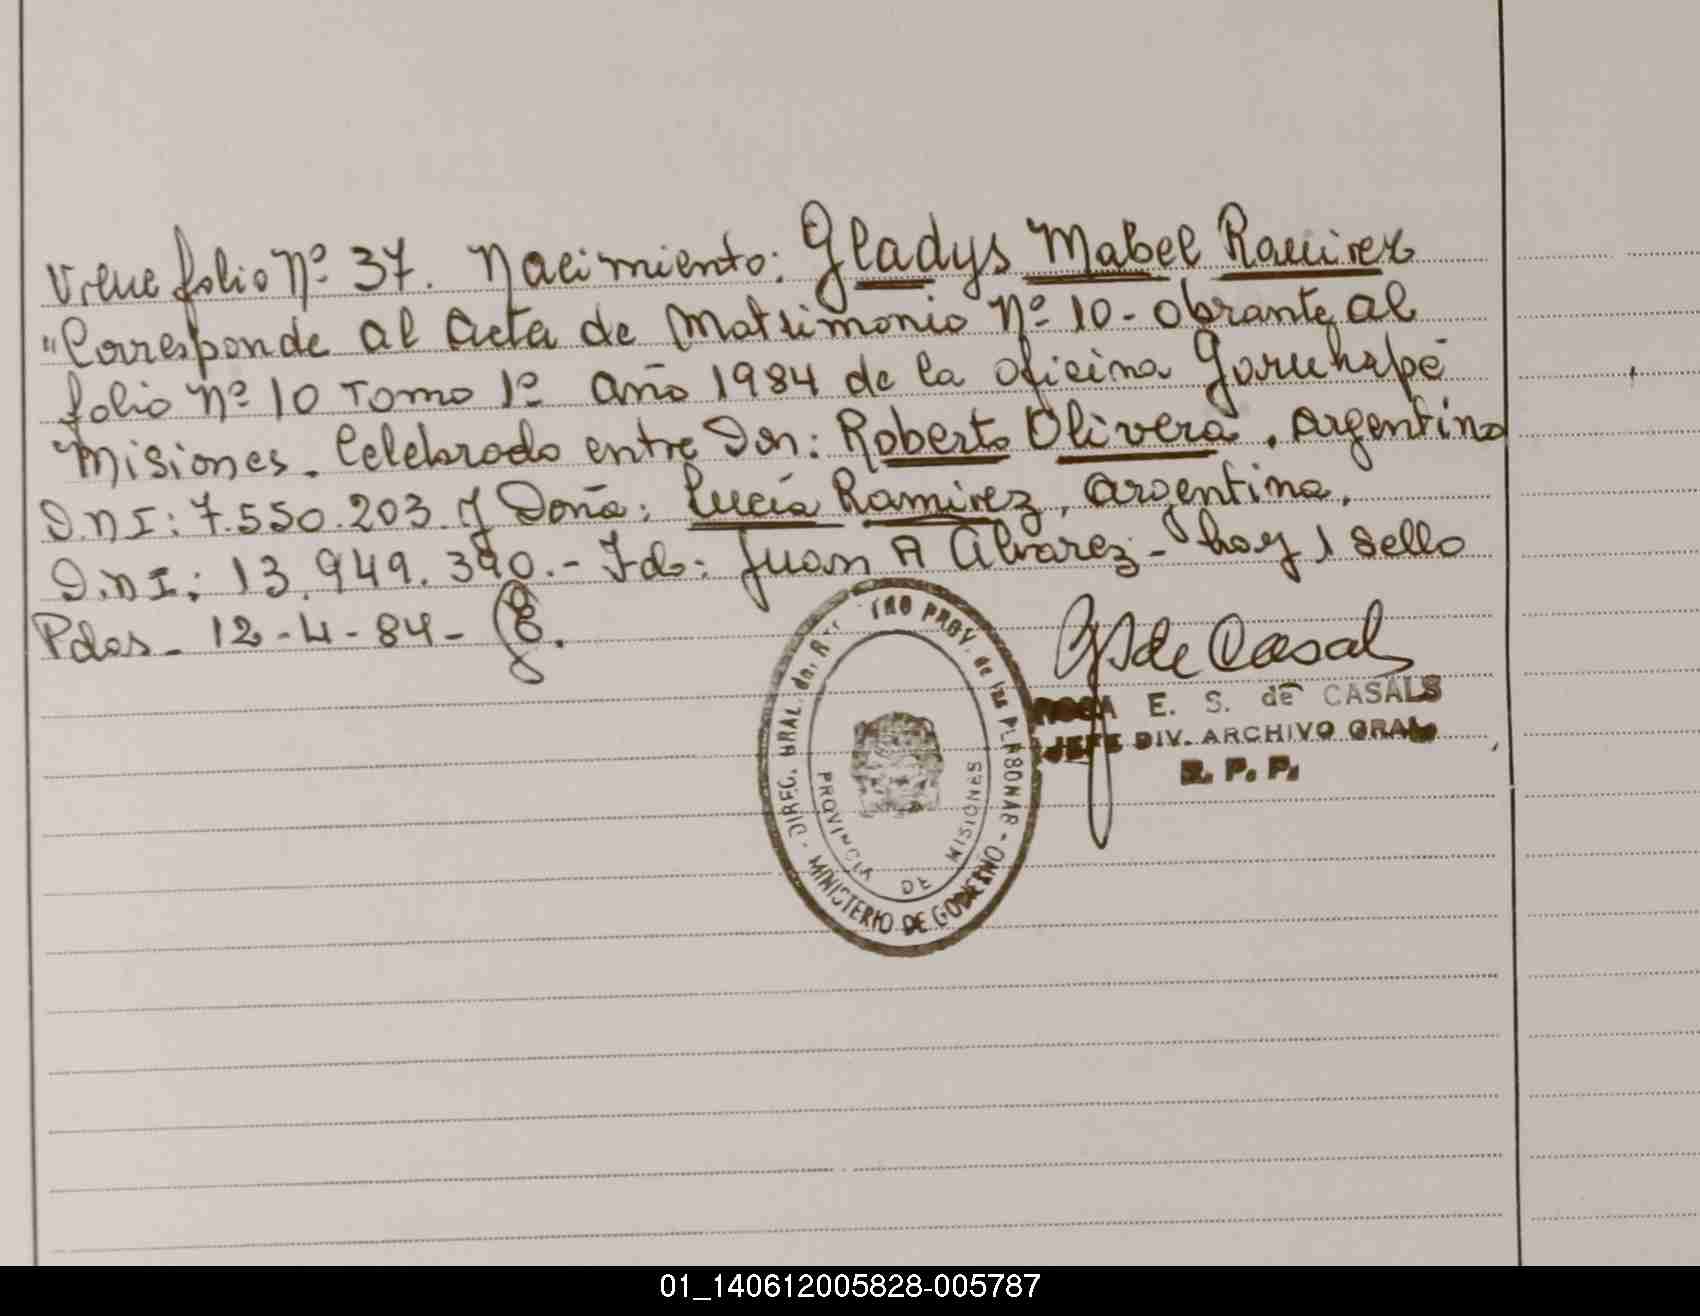 Viene folio Nº 37. Nacimiento: Gladys Mabel Ramirez
"Corresponde al Acta de Matrimonio Nº 10 - Obrante al
folio Nº 10 Tomo 1º año 1984 de la oficina Garuhapé
Misiones. Celebrado entre Don: Roberto Olivera. Argentino
D.N.I: 7.550.203. y Doña: Lucía Ramirez, argentina.
D.N.I: 13.949.390.- Fdo: Juan A Alvarez - hay 1 sello
Pdas - 12-4-84-
DIREC. GRAL. del R TRO PROV. de las PERSONAS - MINISTERIO DE GOBIERNO -
PROVINCIA DE MISIONES
de Casals
ROSA E. S. de CASALS
JEFE DIV. ARCHIVO GRAL.
R. P. P.
01_140612005828-005787